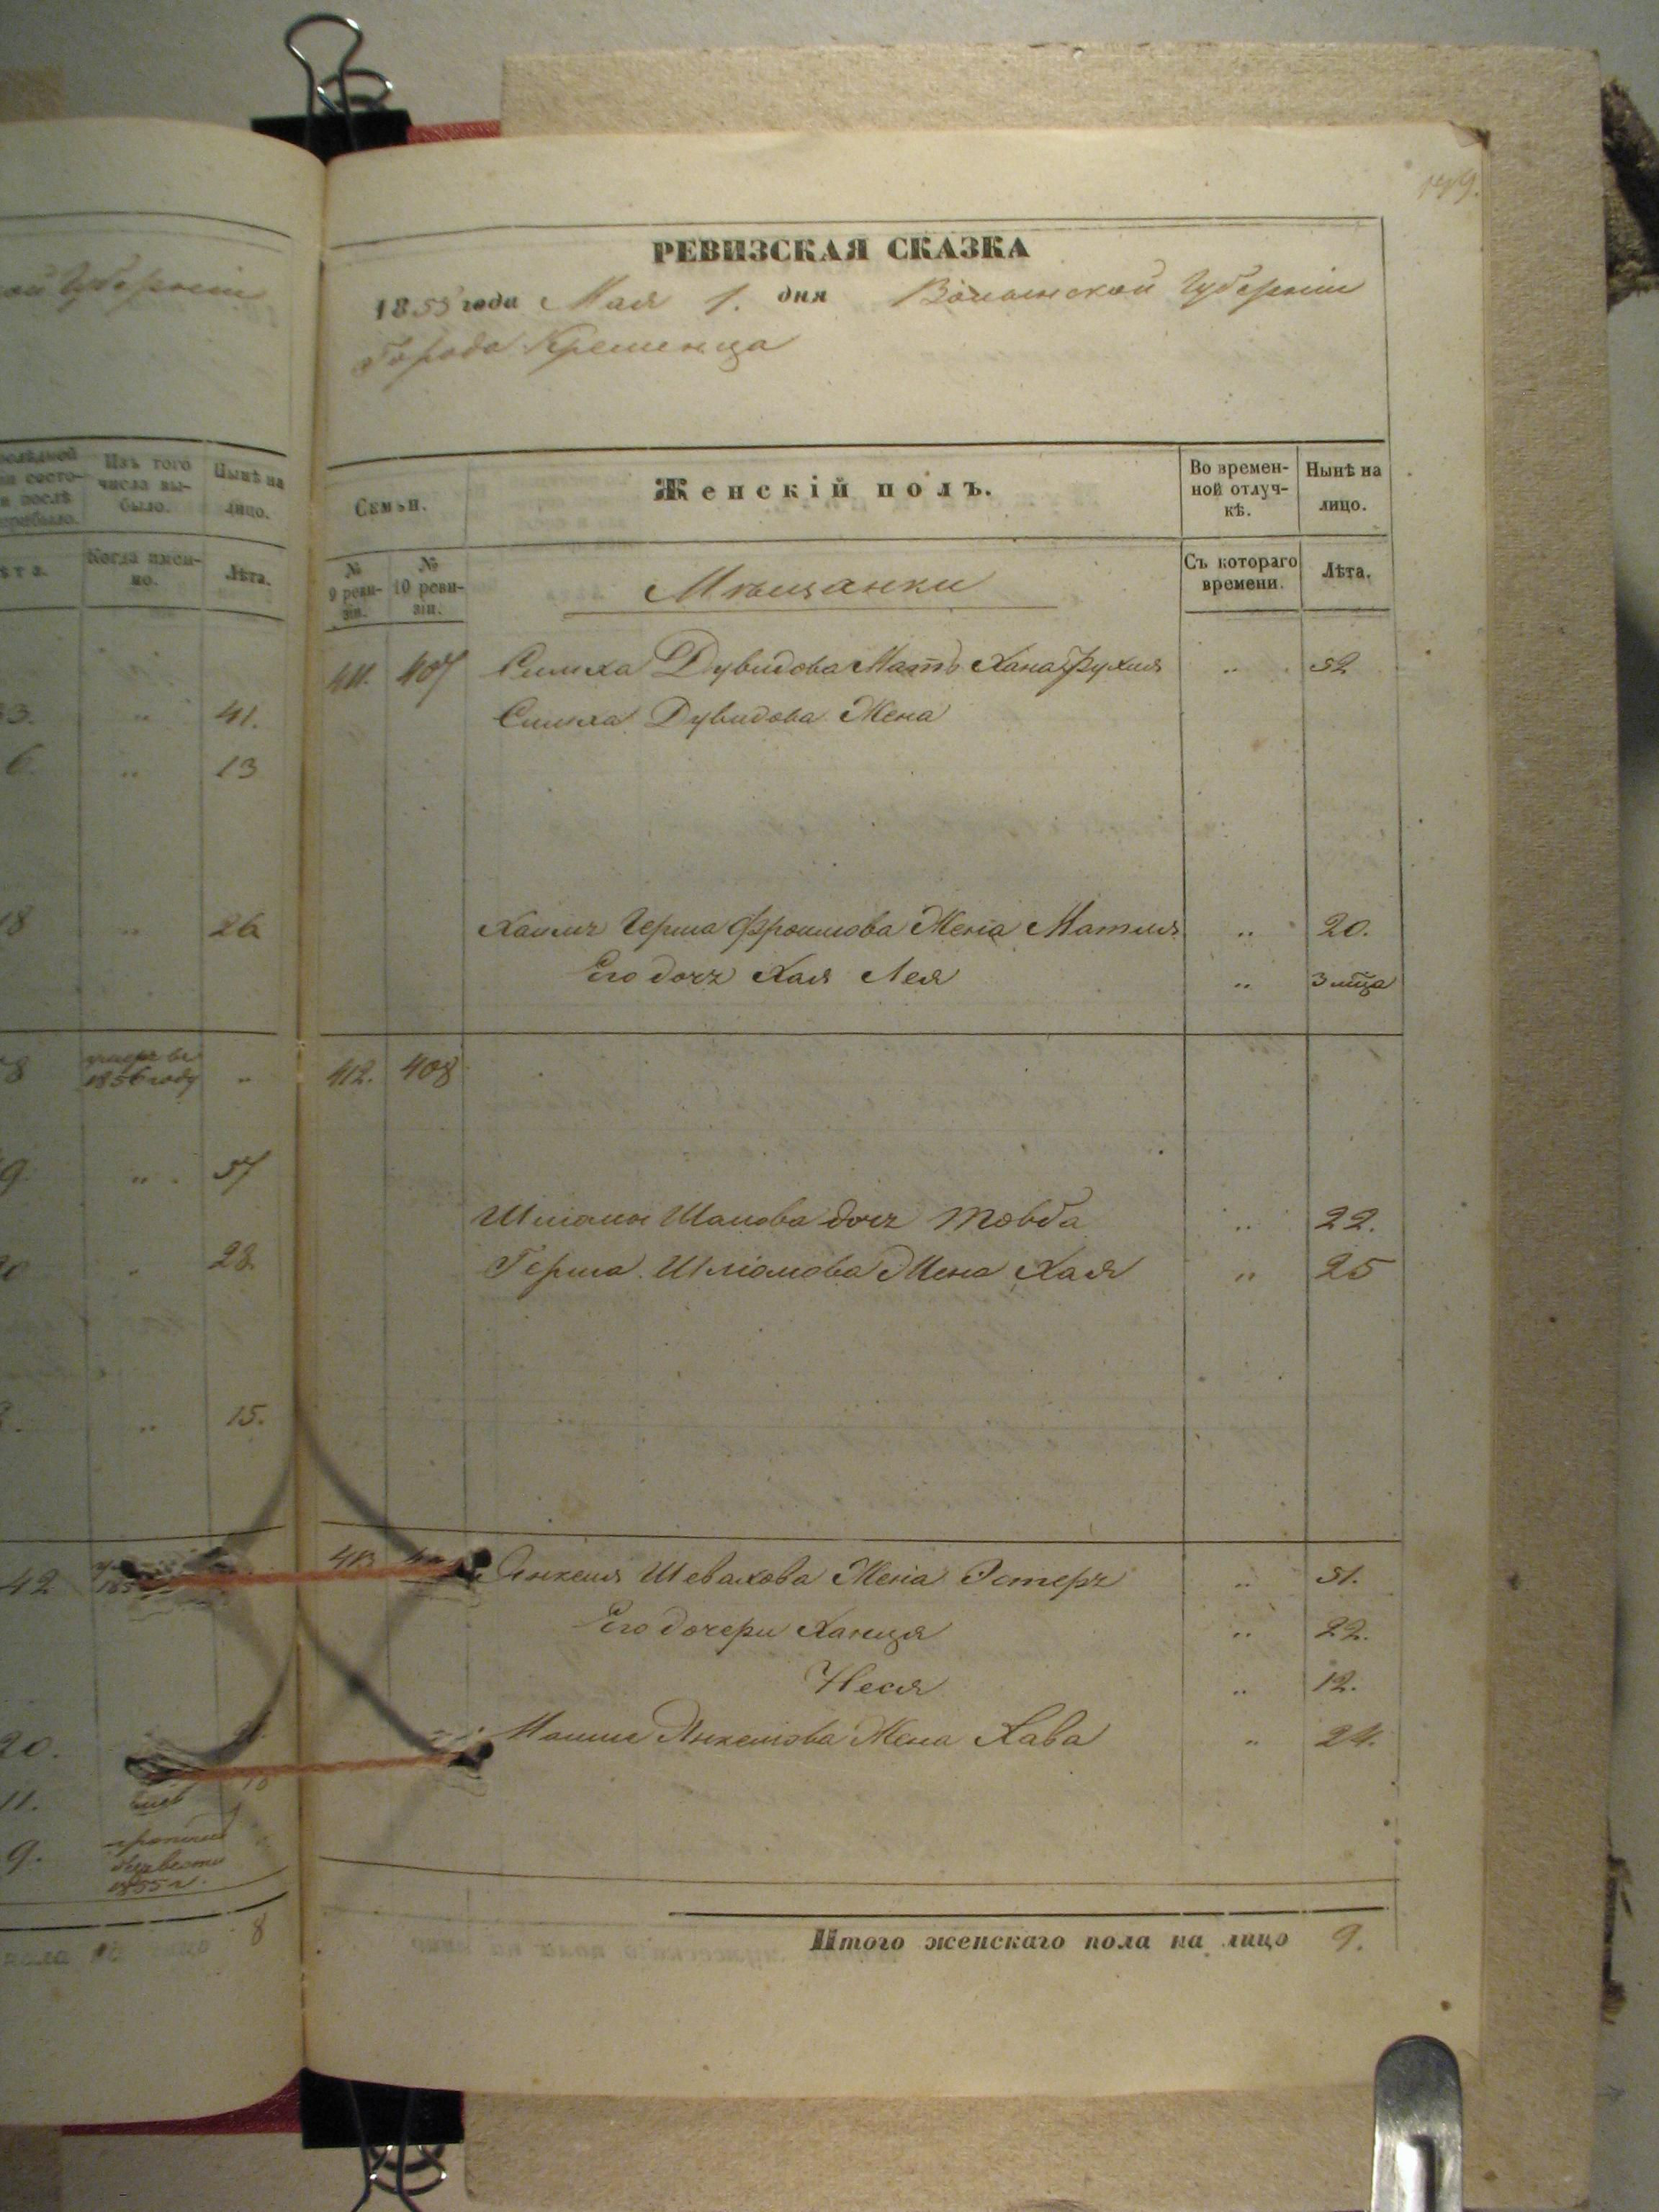 719.
ой Губерніи
число вы-
было.
Изъ того
Нынѣ на
лицо.
Когда имен-
но.
Лѣта.
3. „ 41.
6. „ 13
18 „ 26
8 умеръ въ
1856 году „
9. „ 57
28.
„ 15.
42
20.
11.
9.
1855 г.
8
РЕВИЗСКАЯ СКАЗКА
1858 года Мая 1. дня Волынской Губерніи
Города Кременца
Семьи. Женскій полъ. Во времен-
ной отлуч-
кѣ. Нынѣ на
лицо.
№
9 реви-
зіи. №
10 реви-
зіи. Мѣщанки Съ котораго
времени. Лѣта.
411. 407 Симха Дувидова Мать Хана Рухля „ 52
Симха Дувидова Жена
Хаимъ Герша Фроимова Жена Матля „ 20.
Его дочь Хая Лея „ 3 мца
412. 408
Шліома Шаиова дочь Товба „ 22.
Герша Шліомова Жена Хая „ 25
413 Янкеля Шевахова Жена Эстеръ „ 51.
Его дочери Ханця „ 22.
Неся „ 12.
Мошка Янкелова Жена Хава „ 24.
Итого женскаго пола на лицо 9.